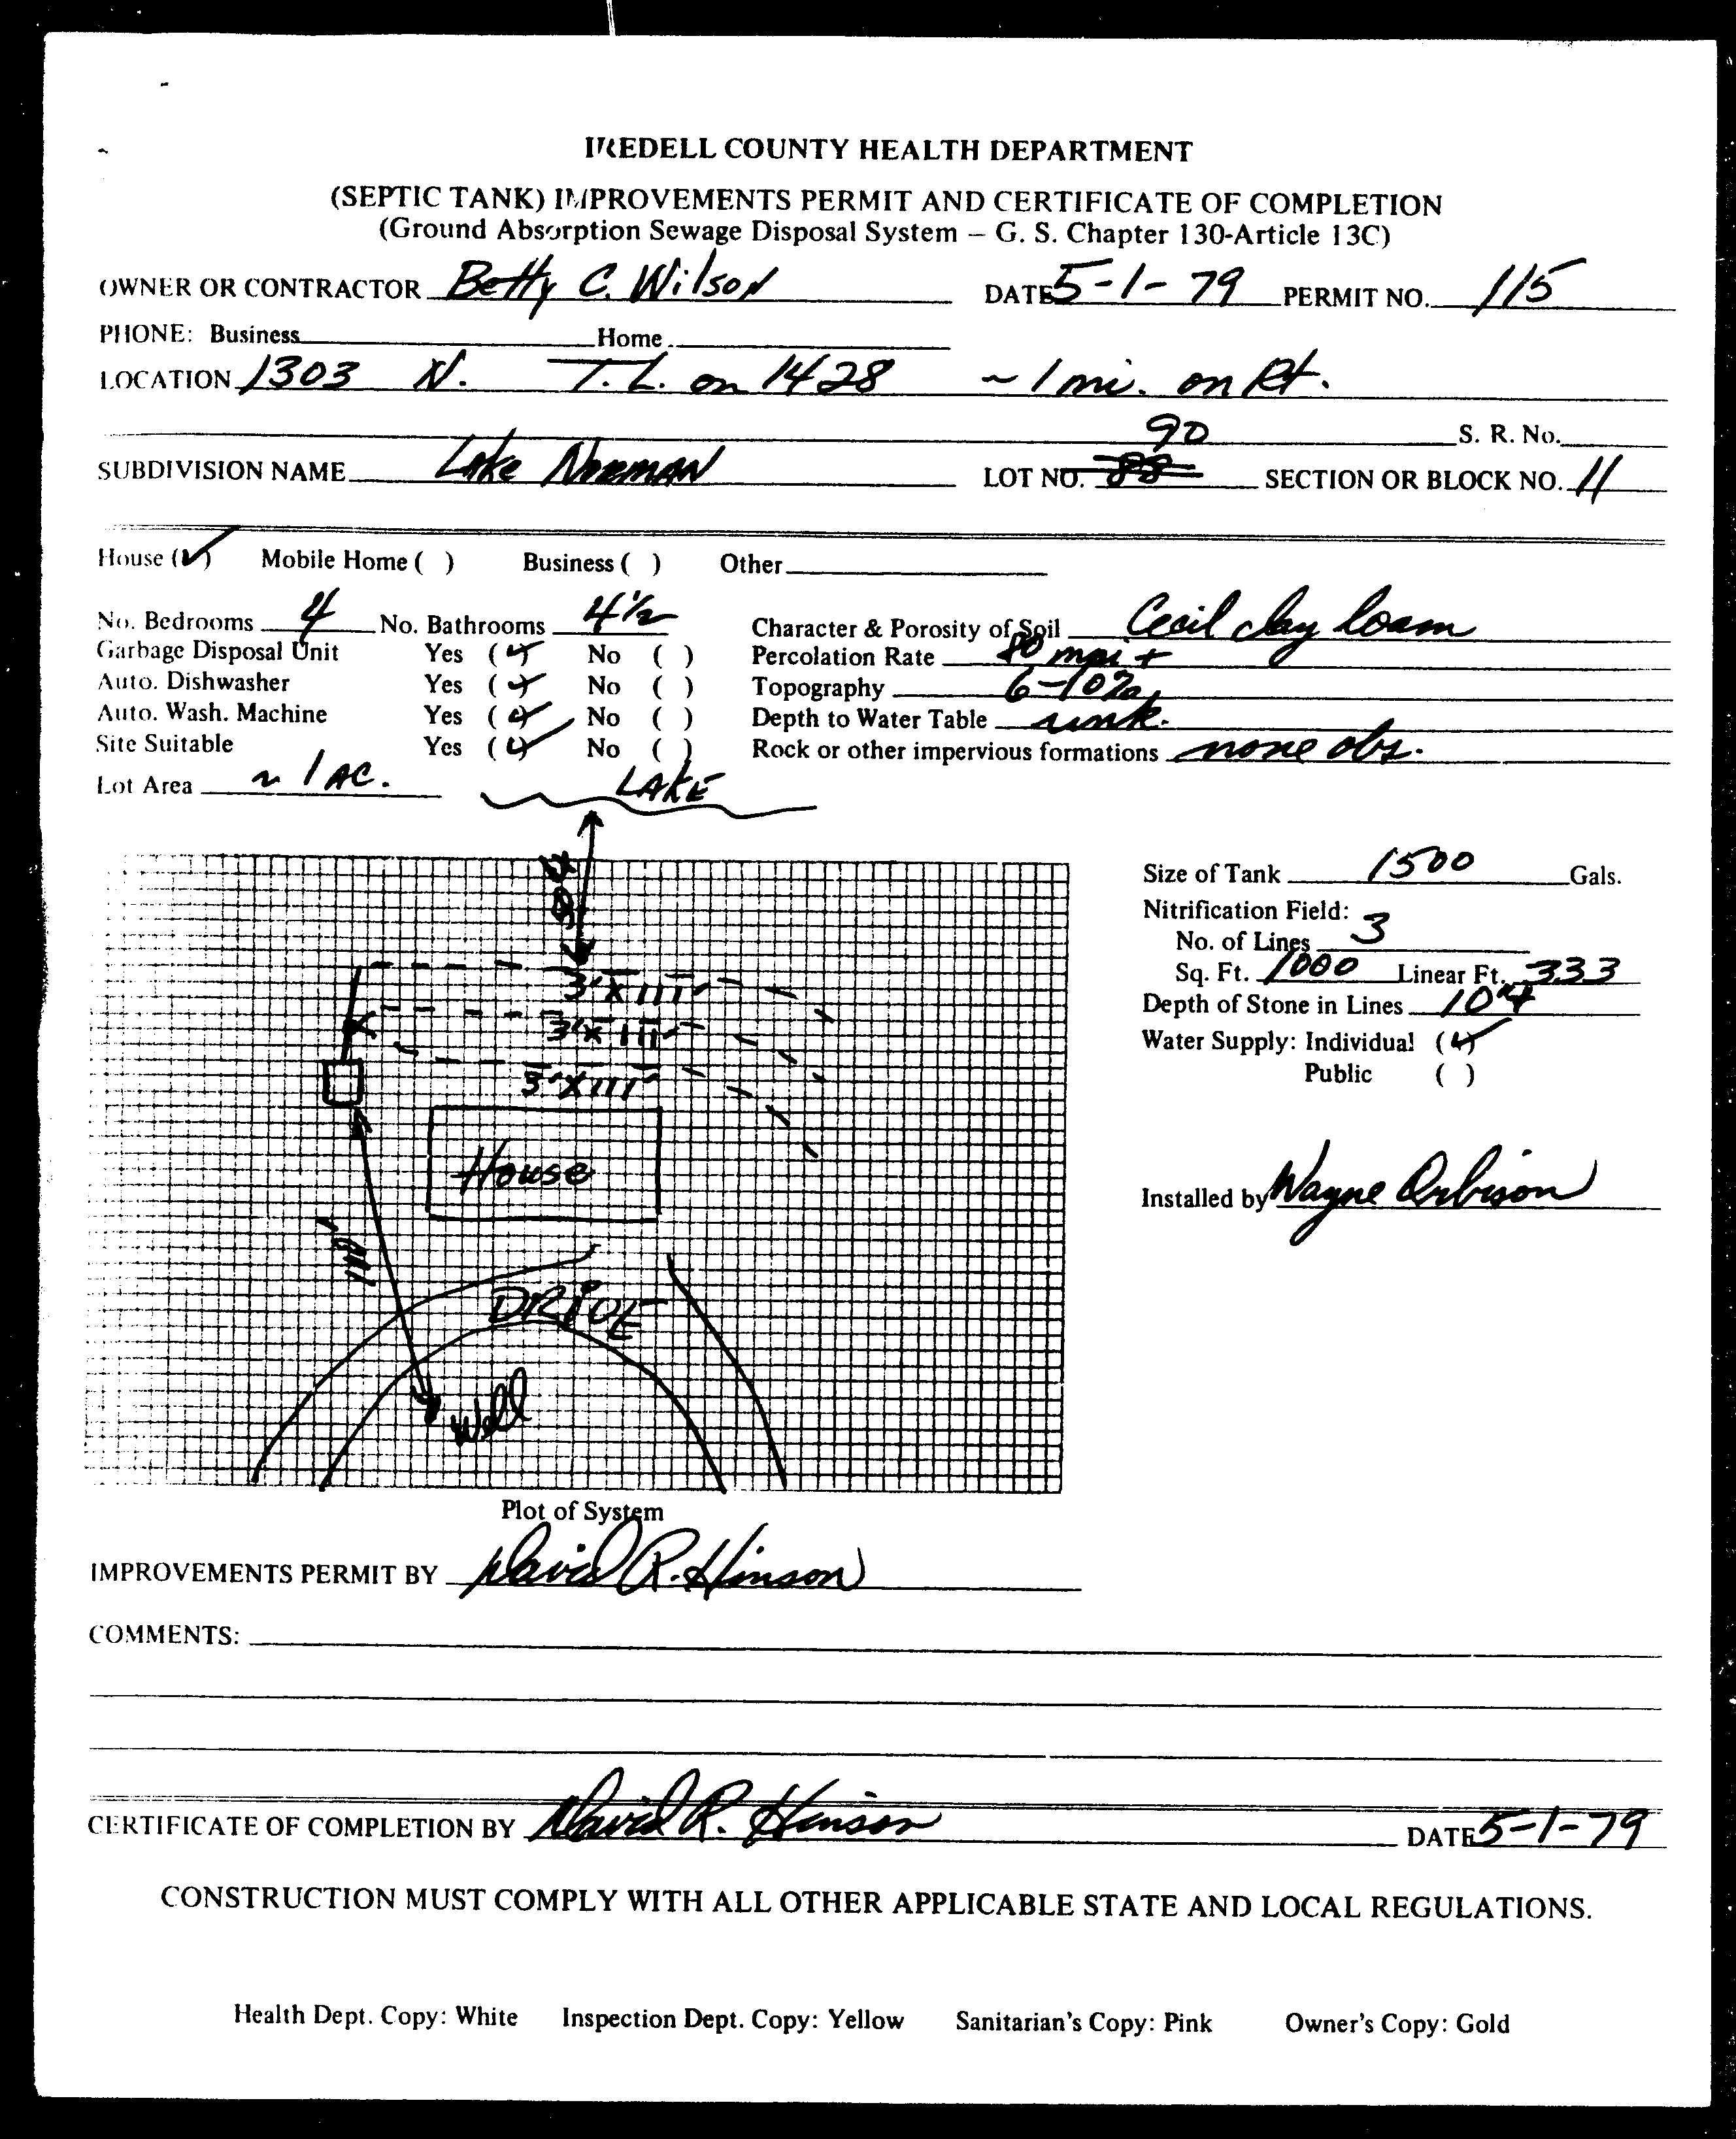 IREDELL COUNTY HEALTH DEPARTMENT
(SEPTIC TANK) IMPROVEMENTS PERMIT AND CERTIFICATE OF COMPLETION
(Ground Absorption Sewage Disposal System – G. S. Chapter 130-Article 13C)
OWNER OR CONTRACTOR Betty C. Wilson DATE 5-1-79 PERMIT NO. 115
PHONE: Business Home
LOCATION 1303 N. T.L. on 1428 ~ 1 mi. on Rt.
90 S. R. No.
SUBDIVISION NAME Lake Norman LOT NO. 88 SECTION OR BLOCK NO. 11
House (✓) Mobile Home ( ) Business ( ) Other
No. Bedrooms 4 No. Bathrooms 4½ Character & Porosity of Soil Cecil clay loam
Garbage Disposal Unit Yes (✓) No ( ) Percolation Rate 80 mpi +
Auto. Dishwasher Yes (✓) No ( ) Topography 6-10%
Auto. Wash. Machine Yes (✓) No ( ) Depth to Water Table unk.
Site Suitable Yes (✓) No ( ) Rock or other impervious formations none obs.
Lot Area ~ 1 AC. LAKE
Size of Tank 1500 Gals.
Nitrification Field:
No. of Lines 3
Sq. Ft. 1000 Linear Ft. 333
Depth of Stone in Lines 10"+
Water Supply: Individual (✓)
Public ( )
Installed by Wayne Orbison
3'X111'
3'X111'
3'X111'
House
DRIVE
Well
Plot of System
IMPROVEMENTS PERMIT BY David R. Hinson
COMMENTS:
CERTIFICATE OF COMPLETION BY David R. Hinson DATE 5-1-79
CONSTRUCTION MUST COMPLY WITH ALL OTHER APPLICABLE STATE AND LOCAL REGULATIONS.
Health Dept. Copy: White Inspection Dept. Copy: Yellow Sanitarian's Copy: Pink Owner's Copy: Gold